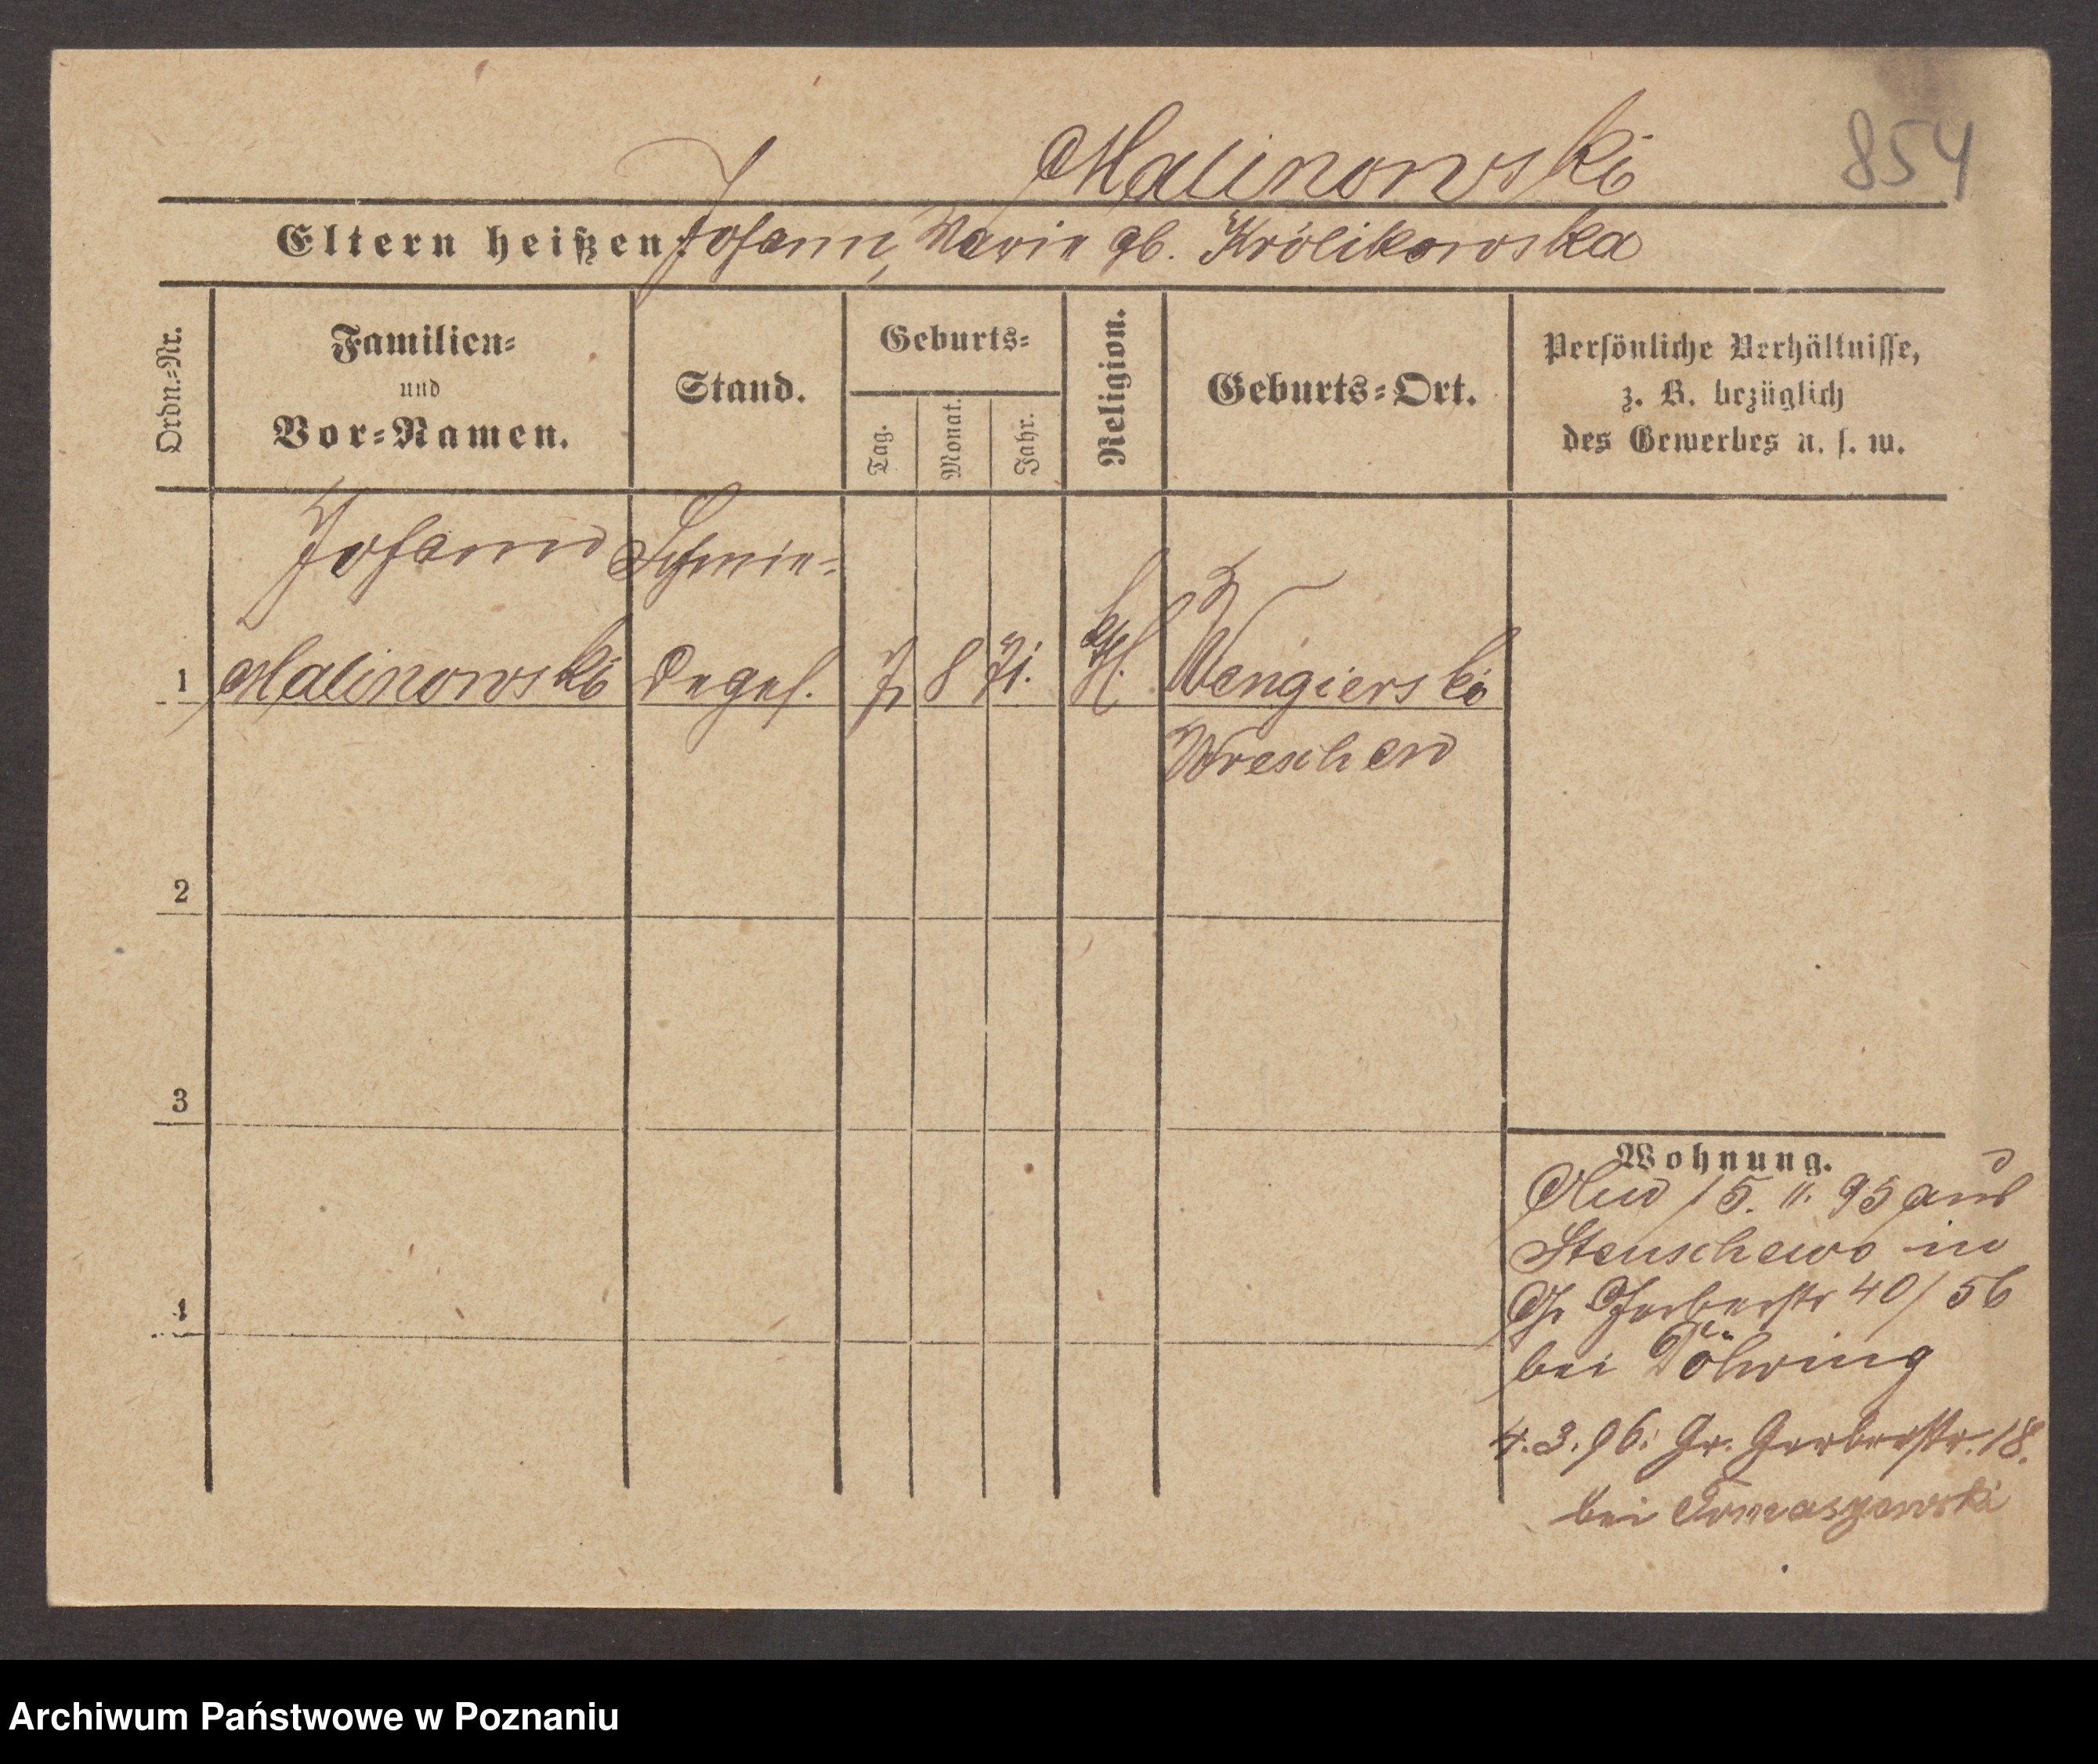 Malinowski
854
Eltern heißen: Johann, Marie gb. Królikowska
Ordn.-Nr.
Familien-
und
Vor-Namen.
Stand.
Geburts-
Tag.
Monat.
Jahr.
Religion.
Geburts-Ort.
Persönliche Verhältnisse,
z. B. bezüglich
des Gewerbes u. s. w.
Johann
Schmie-
1
Malinowski
deges.
7
8
71.
kth.
Wengierski
Wreschen
2
3
4
Wohnung.
15. 11. 95 aus
Stenschewo in
Gr Gerberstr 40/56
bei Döhring
4.3.96: Gr. Gerberstr. 18.
bei Tomaszewski
Archiwum Państwowe w Poznaniu